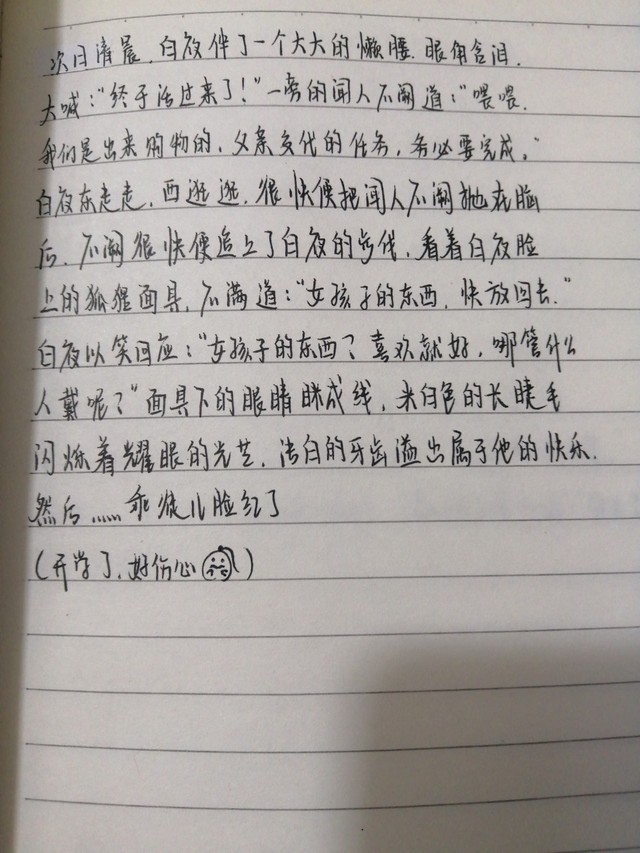 次日清晨，白夜伴了一个大大的懒腰，眼角含泪，
大喊：“终于活过来了！”一旁的闻人不阑道：“喂喂，
我们是出来购物的，父亲交代的任务，务必要完成。”
白夜东走走，西逛逛，很快便把闻人不阑抛在脑
后，不阑很快便追上了白夜的步伐，看着白夜脸
上的狐狸面具，不满道：“女孩子的东西，快放回去。”
白夜以笑回应：“女孩子的东西？喜欢就好，哪管什么
人戴呢？”面具下的眼睛眯成线，米白色的长睫毛
闪烁着耀眼的光芒，洁白的牙齿溢出属于他的快乐。
然后……乖徒儿脸红了
（开学了，好伤心）